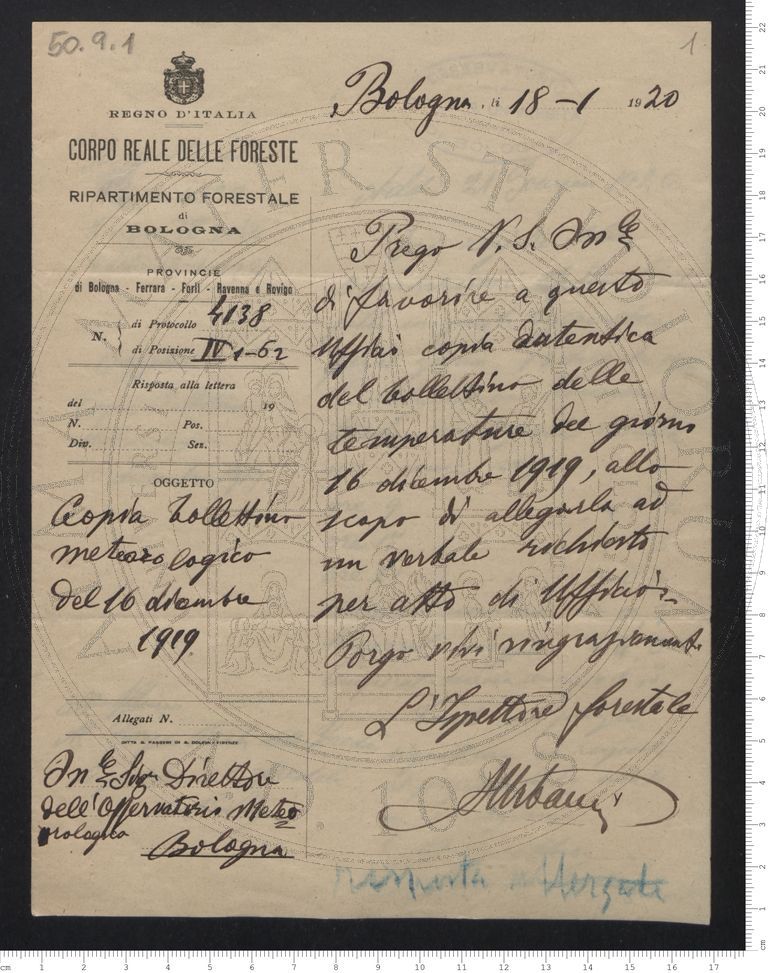 50.9.1
1
REGNO D'ITALIA
CORPO REALE DELLE FORESTE
RIPARTIMENTO FORESTALE
di
BOLOGNA
PROVINCIE
di Bologna - Ferrara - Forlì - Ravenna e Rovigo
N. di Protocollo 4138
di Posizione IV 1-62
Risposta alla lettera
del 19
N. Pos.
Div. Sez.
OGGETTO
Copia bollettino
meteorologico
del 16 dicembre
1919
Allegati N.
Ing. Sig. Direttore
dell'Osservatorio Meteo
rologico
Bologna
Bologna, li 18-1 1920
Prego V. S. Ill.
di favorire a questo
Ufficio copia autentica
del bollettino delle
temperature del giorno
16 dicembre 1919, allo
scopo di allegarla ad
un verbale richiesto
per atto di Ufficio.
Porgo vivi ringraziamenti
L'Ispettore forestale
risposta a tergo